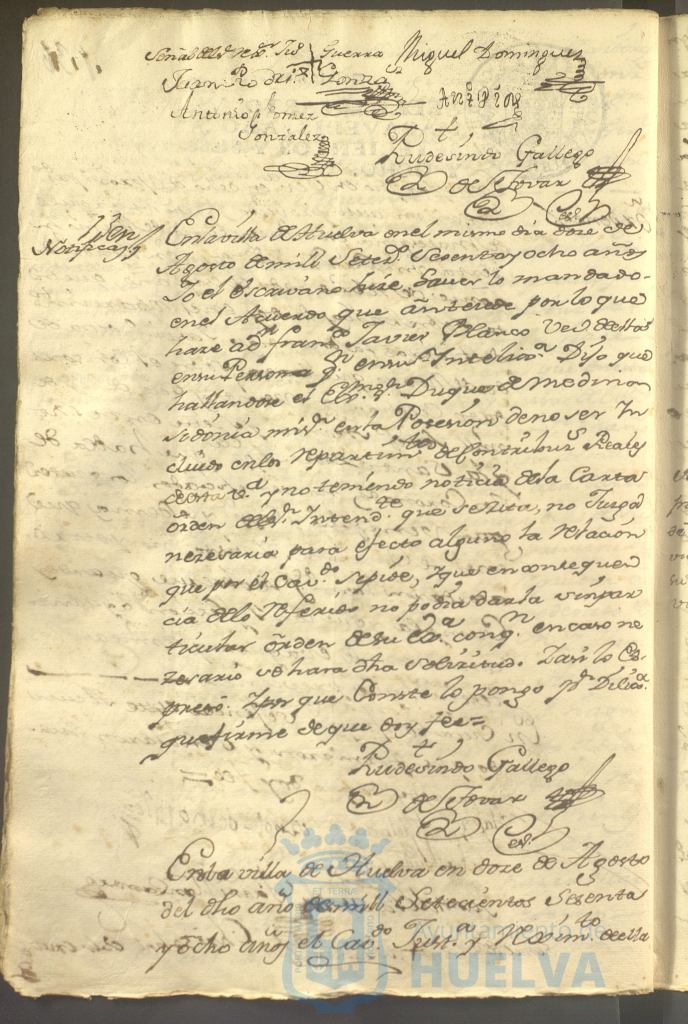 Señal del Sr. Rexor. Jud Guerra Miguel Dominguez
Juan Ro
Gonzz
Antonio Gomez
Gonzalez
Antte
Rudesindo Gallego
de Tovar
Esno
Notificazn
En la villa de Huelva en el mismo dia doze de
Agosto de mill Setezs. Sesenta y ocho años
Yo el escrivano hize saver lo mandado
en el Acuerdo que antezede por lo que
haze a Dn. Franco. Javier Blanco Vezo. de ella
en su Persona qn. en su Inteliga. Dijo que
hallandose el Exmo. Sr. Duque de Medina
Sidonia mi Sr. en la Posesion de no ser In
cluido en los repartimtos. de Contribuzs. Reales
de esta va. y no teniendo noticia de la Carta
orden del Sr. Intendte. que se zita, no Juzga
nezesaria para efecto alguno la relazion
que por el Cavdo. se pide, y que en consequen
cia de lo referido no podia darla sin par
ticular orden de su exa. con qn. en caso ne
zesario se hara dha solizitud. Y asi lo ex
preso. Y por que Conste lo pongo pr. Diliga.
que firme de que doy fee=
Rudesindo Gallego
de Tovar
Esno
En la villa de Huelva en doze de Agosto
del dho año de mill Setecientos Sesenta
y ocho años el Cavdo. Justa. y Reximto. de ella
Ayuntamiento de
HUELVA